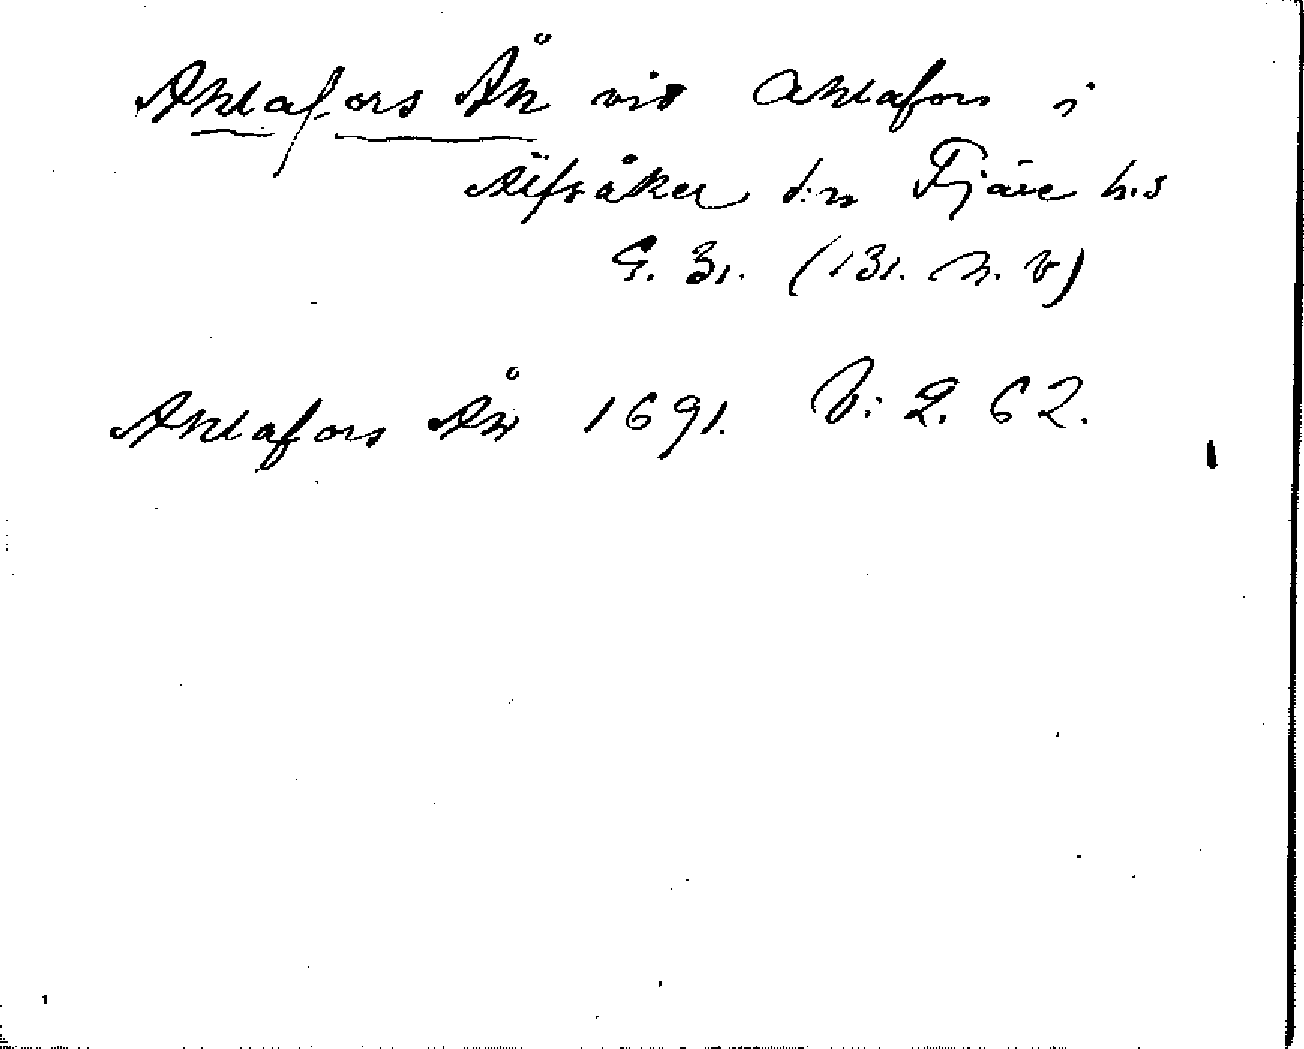 Ahlafors Ån vid Ahlafors i
Älfsåker s:n Fjäre h.d
G. 31. (131. n. v)
Ahlafors Ån 1691. V: 2. 62.